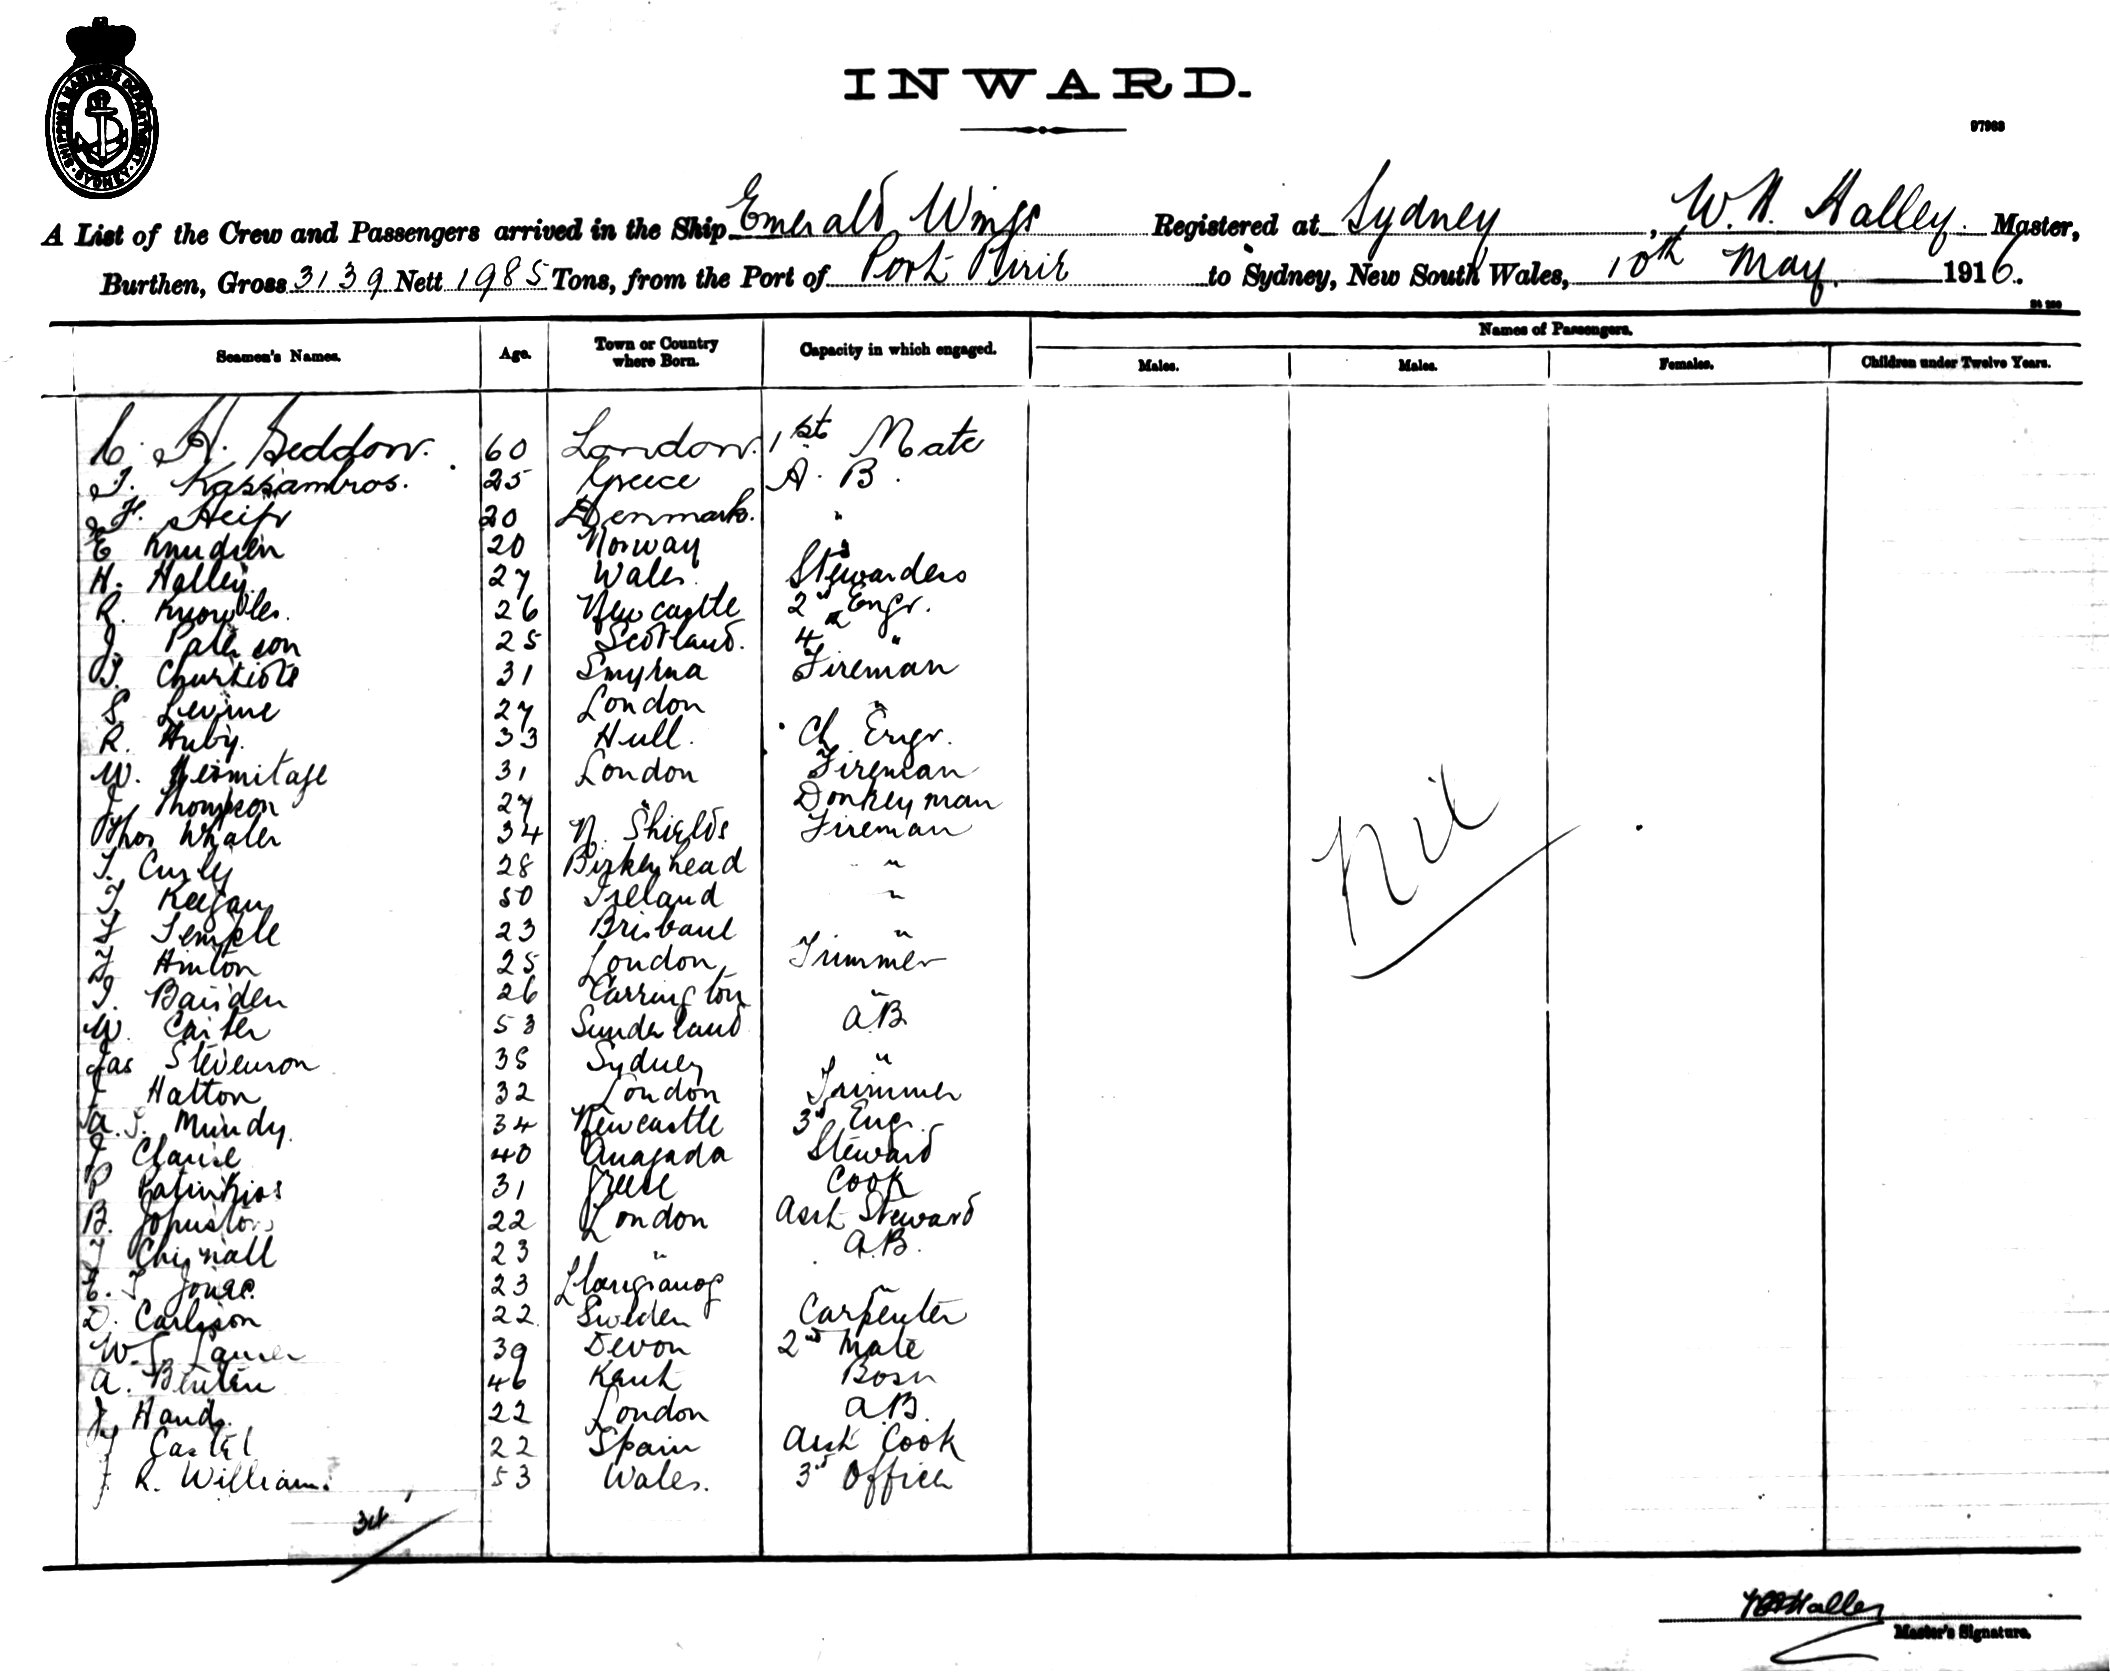 SHIPPING MASTERS DEPARTMENT. SYDNEY.
INWARD.
97963
A List of the Crew and Passengers arrived in the Ship Emerald Wings Registered at Sydney, W. H. Halley. Master,
Burthen, Gross 3139 Nett 1985 Tons, from the Port of Port Pirie to Sydney, New South Wales, 10th May. 1916.
Names of Passengers.
Seamen's Names. Age. Town or Country where Born. Capacity in which engaged. Males. Males. Females. Children under Twelve Years.
C. H. Seddon. 60 London. 1st Mate
J. Kassambros. 25 Greece A. B.
20 Denmark. "
E Knudsen 20 Norway "
H. Halley. 27 Wales. Stewardess
R. Knowles. 26 Newcastle 2nd Engr.
J. Paterson 25 Scotland. 4th "
31 Smyrna Fireman
S Levine 27 London "
R. Huby. 33 Hull. Ch Engr.
W. Hermitage 31 London Fireman
J Thompson 27 " Donkeyman
Thos Whaler 34 N. Shields Fireman
T. Curly 28 Birkenhead "
T Keegan 50 Ireland "
Temple 23 Brisbane "
Hinton 25 London Trimmer
Baisden 26 Carrington "
W. Carter 53 Sunderland A.B
Jas Stevenson 38 Sydney "
Hatton 32 London Trimmer
Mundy. 34 Newcastle 3rd Engr.
J 40 Anagada Steward
P 31 Greece Cook
B. Johnston 22 London Asst Steward
Chisnall 23 " A.B.
E. T Jones. 23 "
D. Carlsson 22 Sweden Carpenter
W. 39 Devon 2nd Mate
A. 46 Kent Bosn
J Hands. 22 London A.B.
Castel 22 Spain Asst Cook
J. R. Williams. 53 Wales. 3rd Officer
Nil
34
W H Halley
Master's Signature.